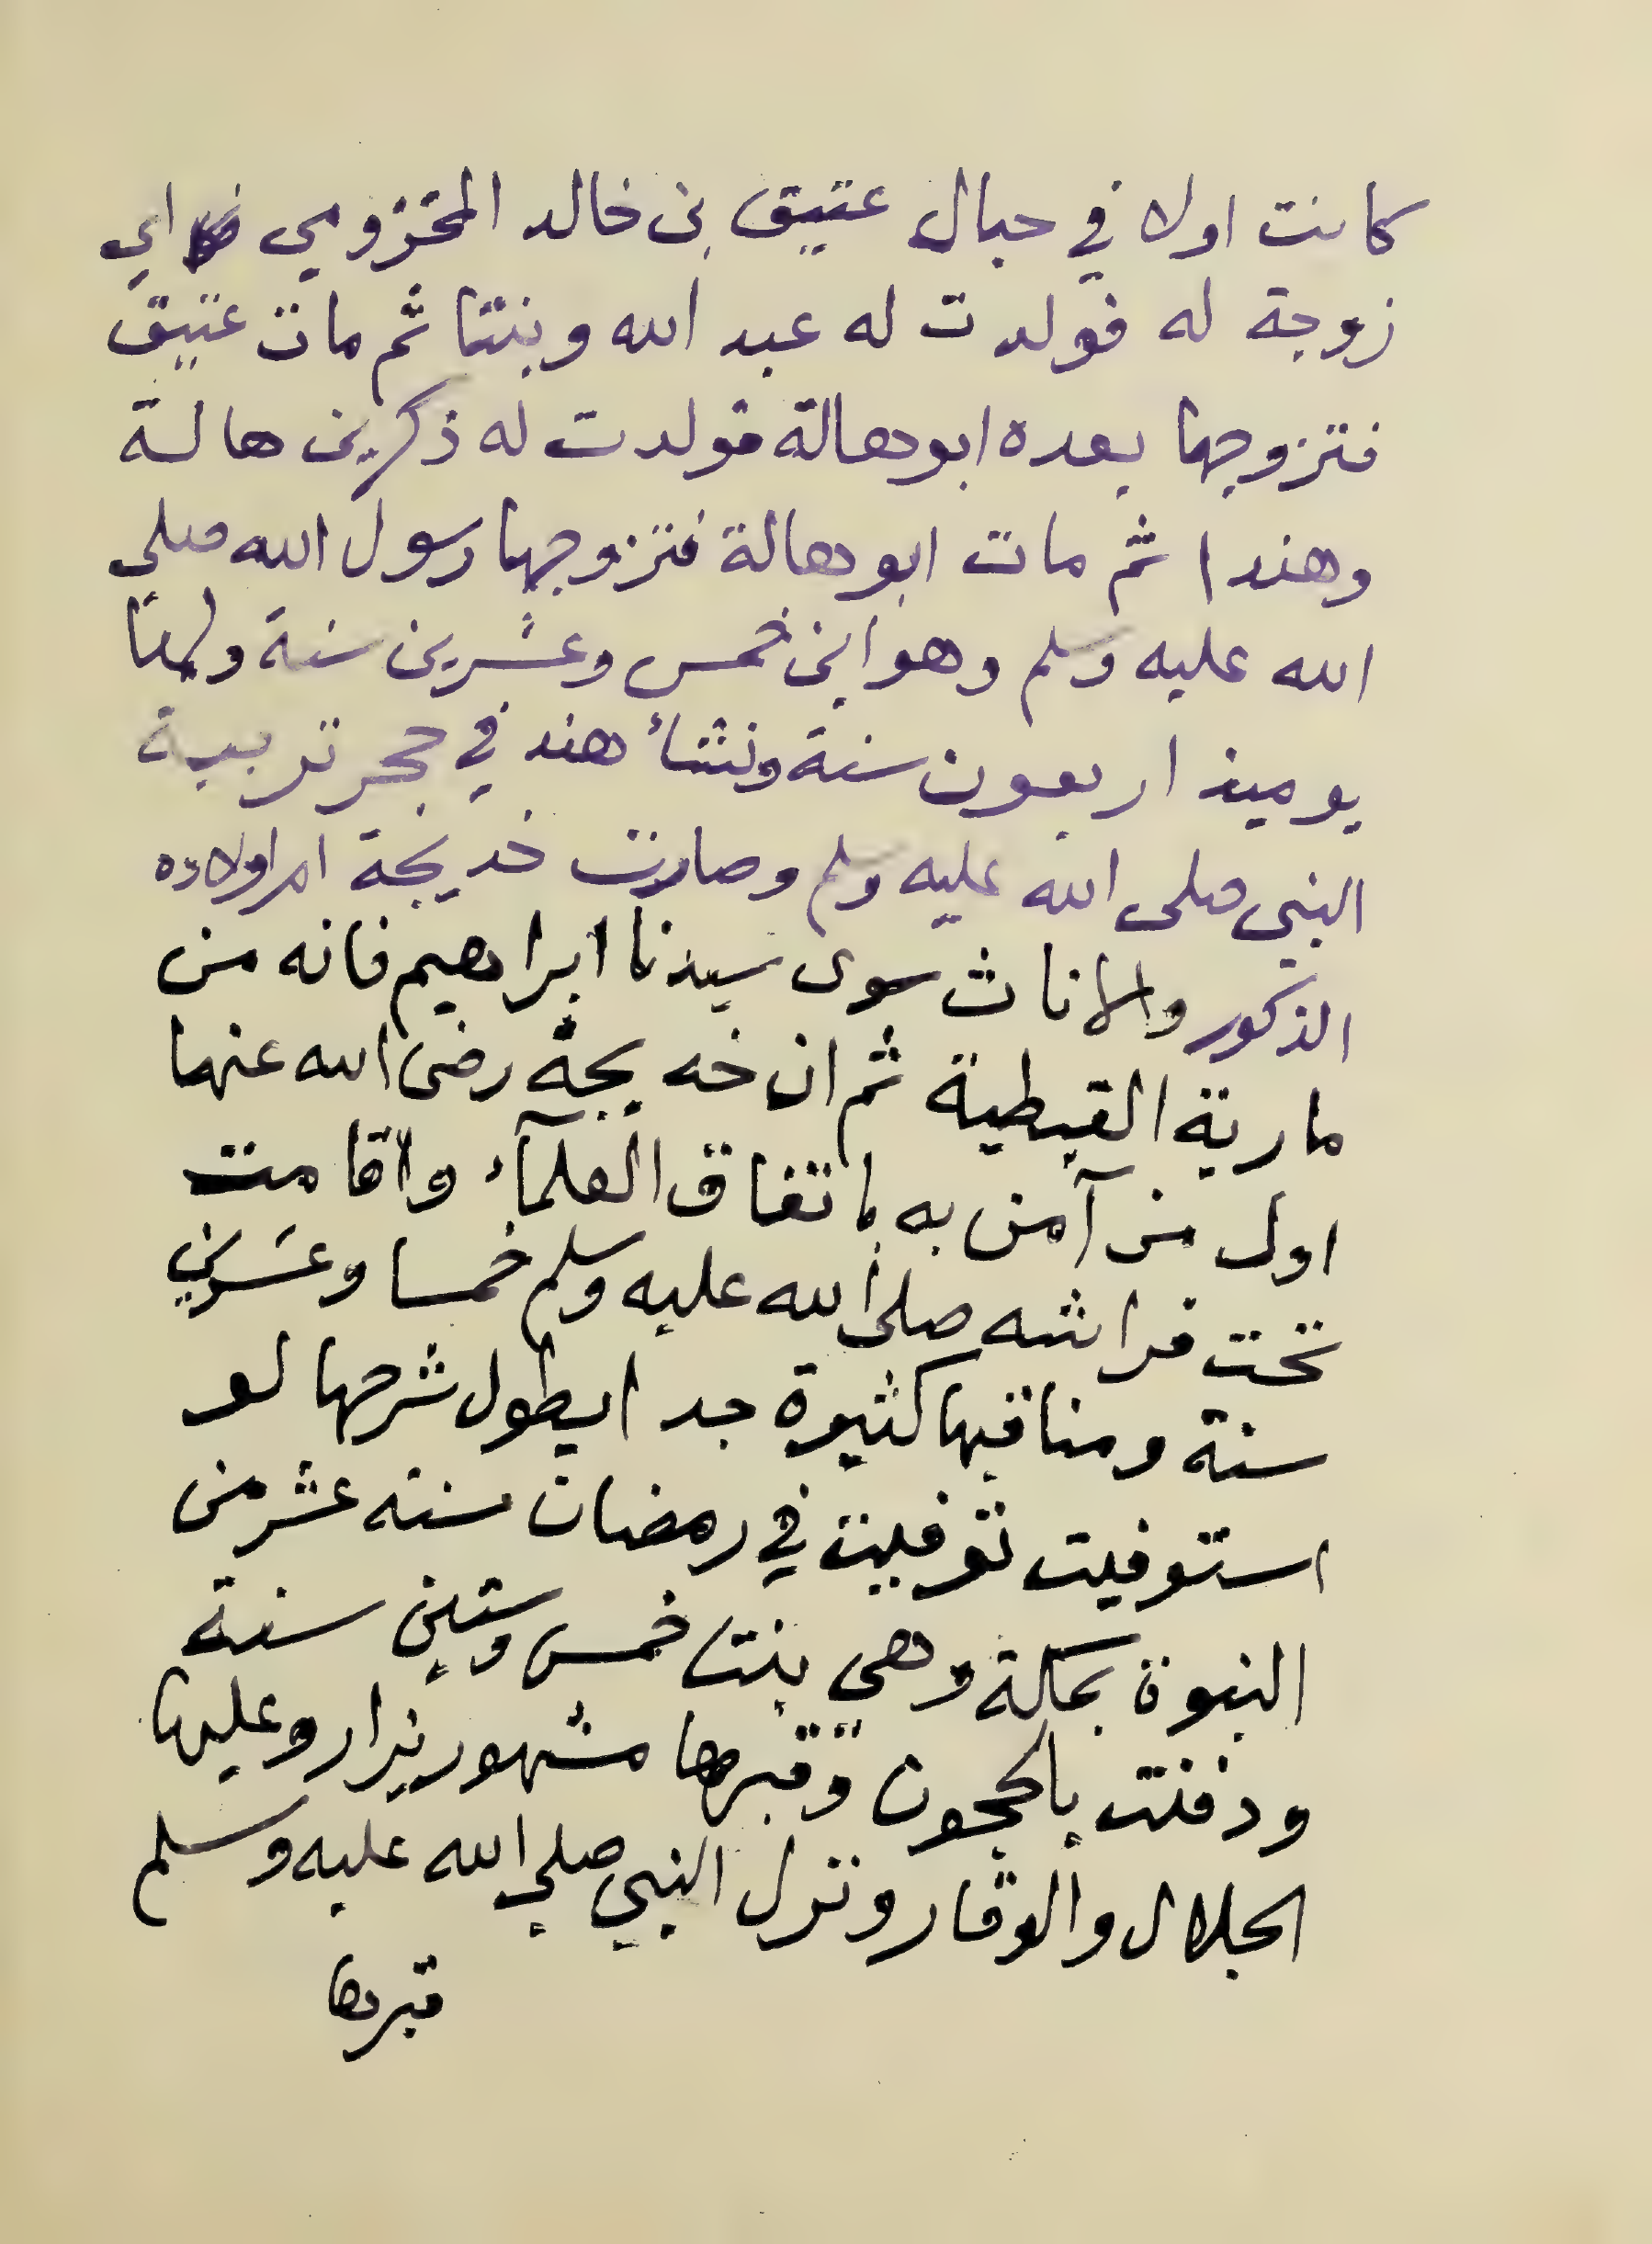 كانت اولا في حبال عتيق بن خالد المخزومي اي
زوجة له فولدت له عبد الله وبنتا ثم مات عتيق
فتزوجها بعده ابوهالة فولدت له ذكرين هالة
وهندا ثم مات ابوهالة فتزوجها رسول الله صلى
الله عليه وسلم وهو ابن خمس وعشرين سنة ولها
يوميذ اربعون سنة ونشأ هند في حجر تربية
النبي صلى الله عليه وسلم وصارت خديجة ام اولاده
الذكور والاناث سوى سيدنا ابراهيم فانه من
مارية القبطية ثم ان خديجة رضى الله عنها
اول من آمن به باتفاق العلمآء واقامت
تحت فراشه صلى الله عليه وسلم خمسا وعشرين
سنة ومناقبها كثيرة جدا يطول شرحها لو
استوفيت توفيت في رمضان سنة عشر من
النبوة بمكة وهي بنت خمس وستين سنة
ودفنت بالحجون وقبرها مشهور يزار وعليها
الجلال والوقار ونزل النبي صلى الله عليه وسلم
قبرها